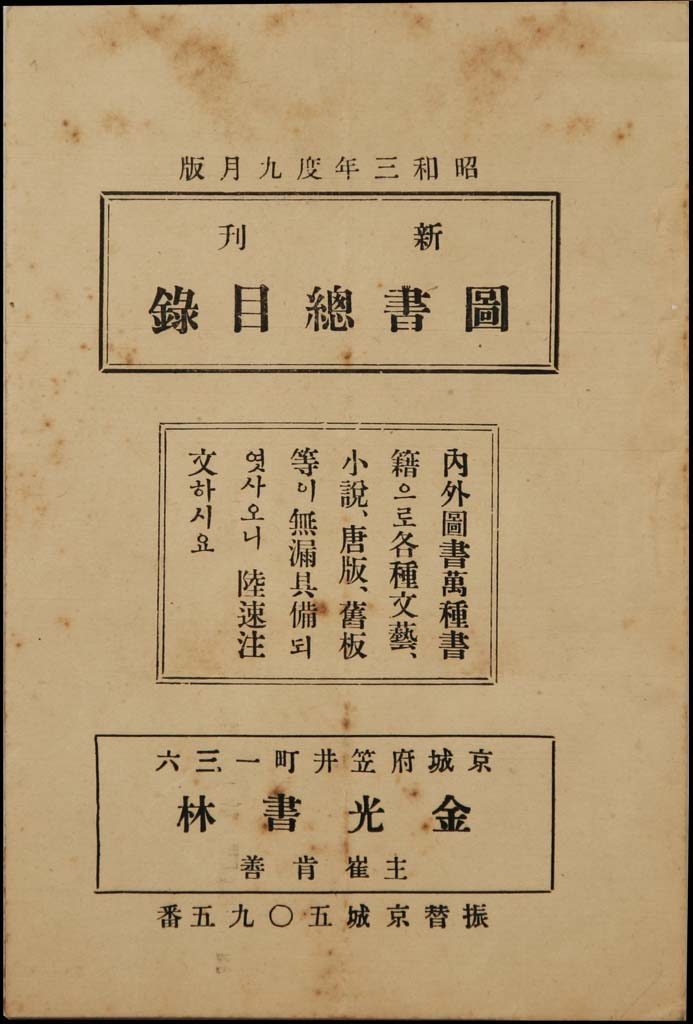 昭和三年度九月版
新刊
圖書總目錄
內外圖書萬種書
籍으로各種文藝、
小說、唐版、舊板
等이無漏具備되
엿사오니 陸速注
文하시요
京城府笠井町一三六
金光書林
主崔肯善
振替京城五〇九五番